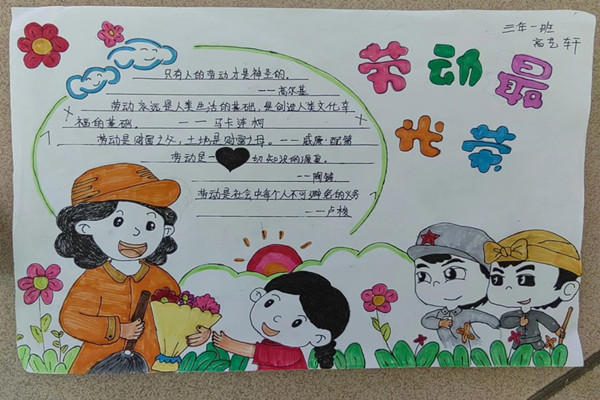 三年一班
高艺轩
劳动最
光荣
只有人的劳动才是神圣的。
——高尔基
劳动永远是人类生活的基础,是创造人类文化幸
福的基础。 ——马卡连柯
劳动是财富之父,土地是财富之母。——威廉·配第
劳动是一切知识的源泉。
——陶铸
劳动是社会中每个人不可避免的义务
——卢梭